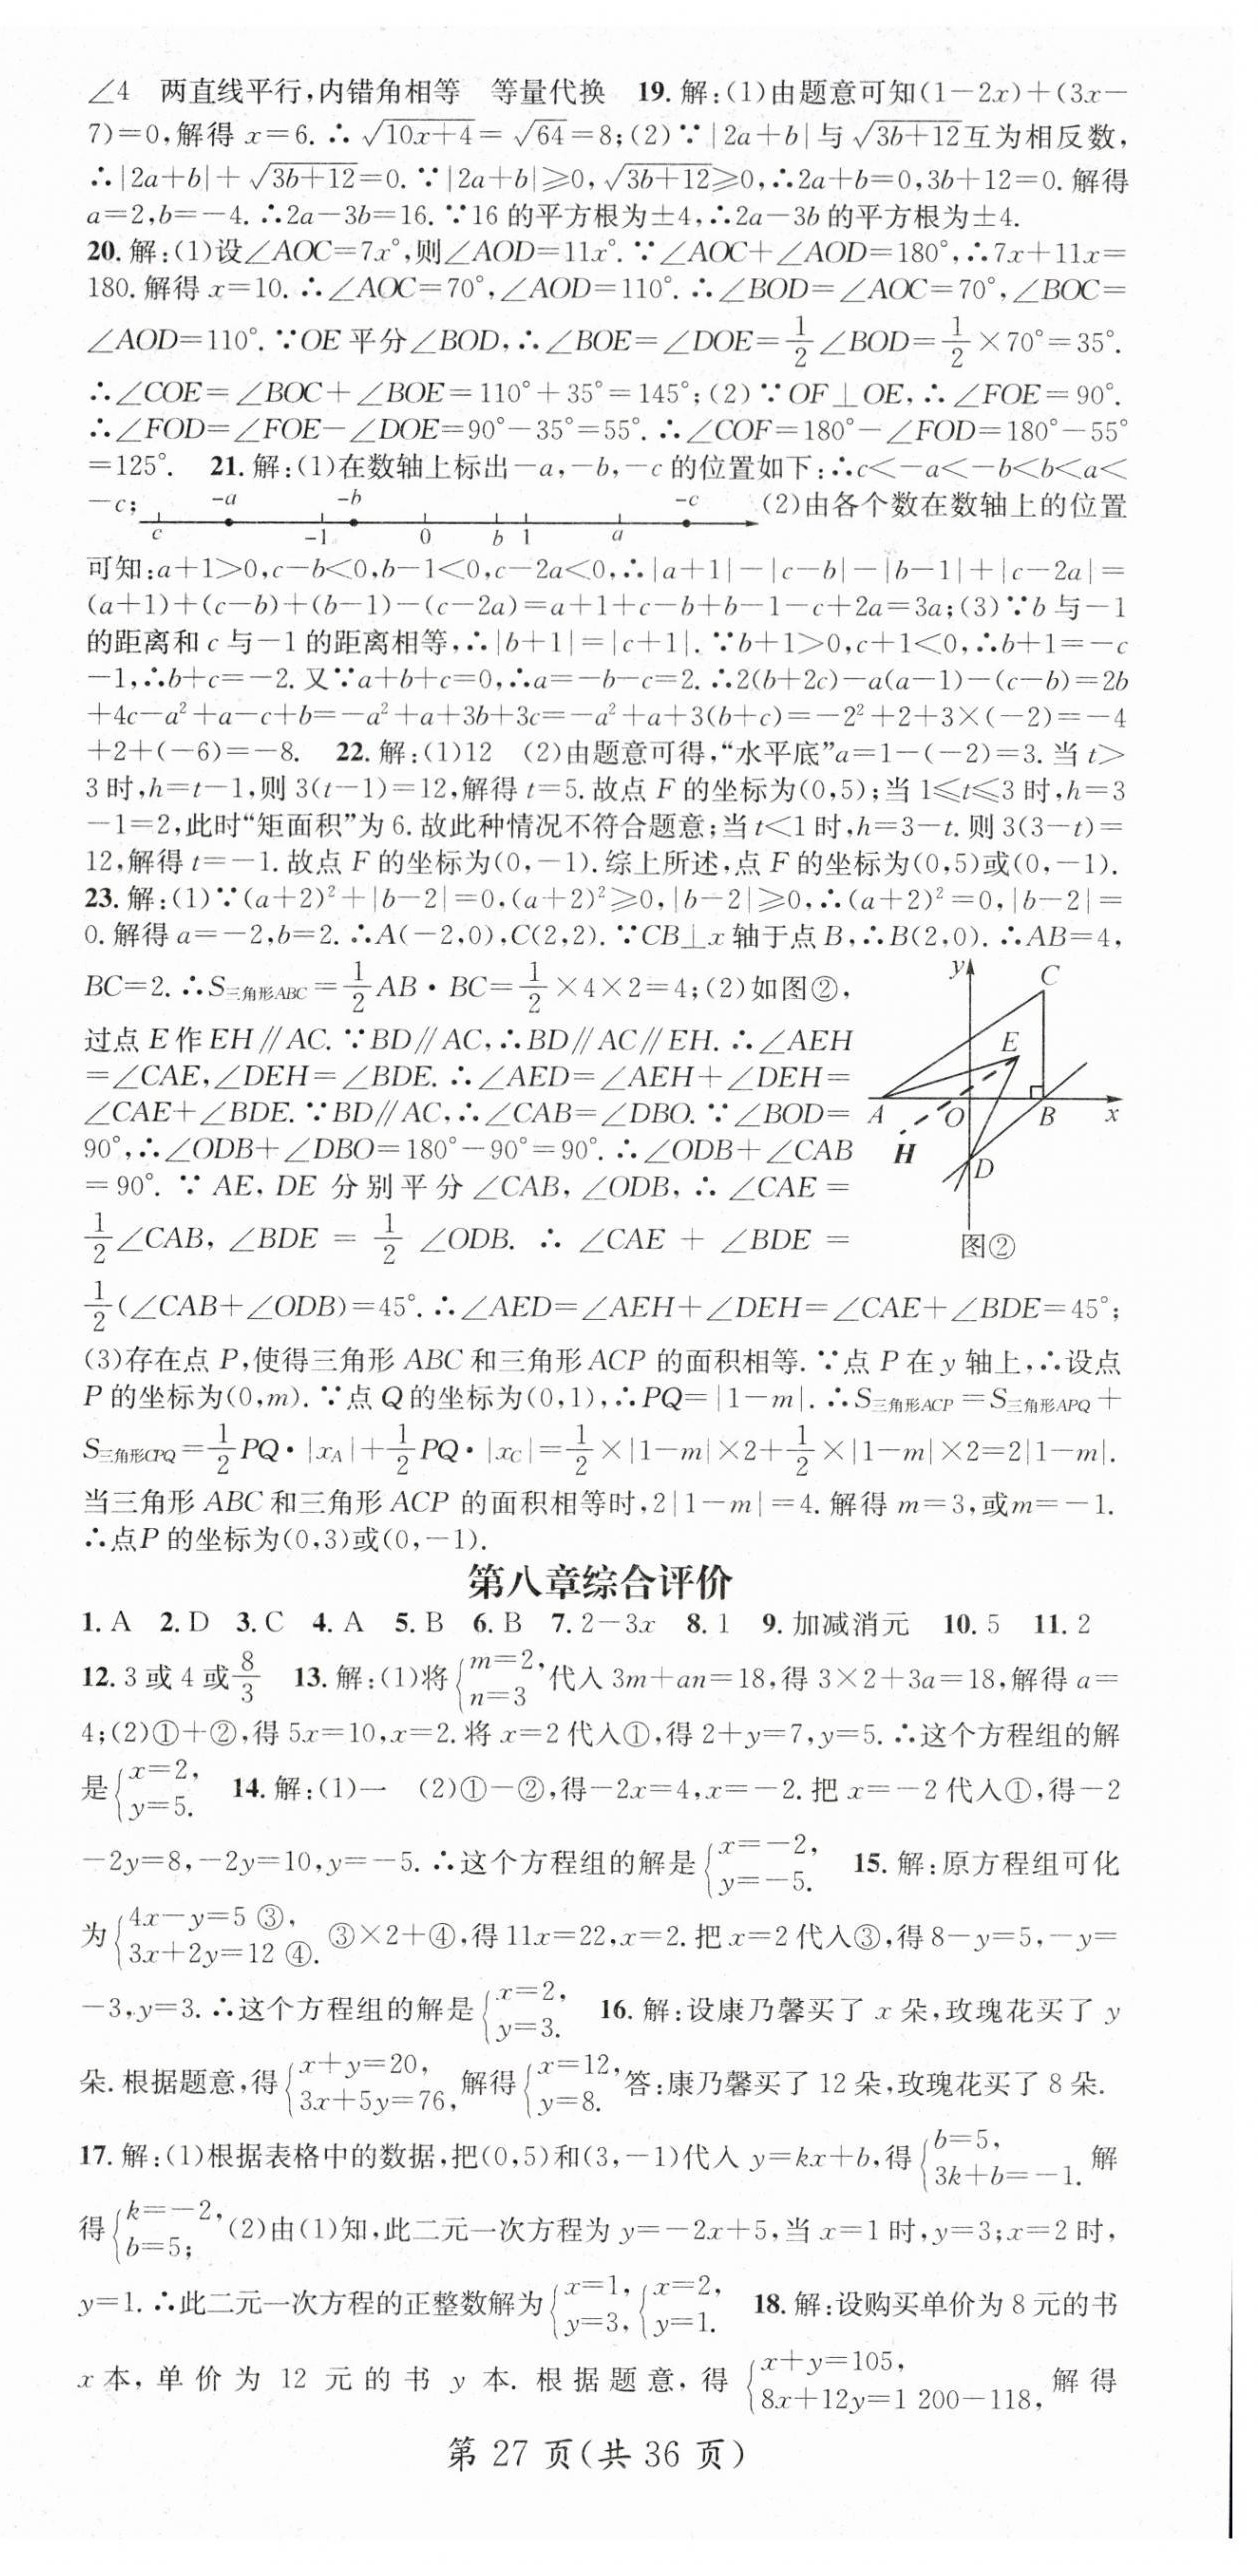 ∠4　两直线平行,内错角相等　等量代换　19.解:(1)由题意可知(1-2x)+(3x-
7)=0,解得 x=6.∴√(10x+4)=√64=8;(2)∵|2a+b|与√(3b+12)互为相反数,
∴|2a+b|+√(3b+12)=0.∵|2a+b|≥0,√(3b+12)≥0,∴2a+b=0,3b+12=0.解得
a=2,b=-4.∴2a-3b=16.∵16的平方根为±4,∴2a-3b的平方根为±4.
20.解:(1)设∠AOC=7x°,则∠AOD=11x°.∵∠AOC+∠AOD=180°,∴7x+11x=
180.解得 x=10.∴∠AOC=70°,∠AOD=110°.∴∠BOD=∠AOC=70°,∠BOC=
∠AOD=110°.∵OE平分∠BOD,∴∠BOE=∠DOE=1/2∠BOD=1/2×70°=35°.
∴∠COE=∠BOC+∠BOE=110°+35°=145°;(2)∵OF⊥OE,∴∠FOE=90°.
∴∠FOD=∠FOE-∠DOE=90°-35°=55°.∴∠COF=180°-∠FOD=180°-55°
=125°.　21.解:(1)在数轴上标出-a,-b,-c的位置如下:∴c<-a<-b<b<a<
-c;　-a　-b　-c　(2)由各个数在数轴上的位置
c　-1　0　b　1　a
可知:a+1>0,c-b<0,b-1<0,c-2a<0,∴|a+1|-|c-b|-|b-1|+|c-2a|=
(a+1)+(c-b)+(b-1)-(c-2a)=a+1+c-b+b-1-c+2a=3a;(3)∵b与-1
的距离和c与-1的距离相等,∴|b+1|=|c+1|.∵b+1>0,c+1<0,∴b+1=-c
-1,∴b+c=-2.又∵a+b+c=0,∴a=-b-c=2.∴2(b+2c)-a(a-1)-(c-b)=2b
+4c-a²+a-c+b=-a²+a+3b+3c=-a²+a+3(b+c)=-2²+2+3×(-2)=-4
+2+(-6)=-8.　22.解:(1)12　(2)由题意可得,“水平底”a=1-(-2)=3.当t>
3时,h=t-1,则3(t-1)=12,解得t=5.故点F的坐标为(0,5);当1≤t≤3时,h=3
-1=2,此时“矩面积”为6.故此种情况不符合题意;当t<1时,h=3-t.则3(3-t)=
12,解得t=-1.故点F的坐标为(0,-1).综上所述,点F的坐标为(0,5)或(0,-1).
23.解:(1)∵(a+2)²+|b-2|=0,(a+2)²≥0,|b-2|≥0,∴(a+2)²=0,|b-2|=
0.解得a=-2,b=2.∴A(-2,0),C(2,2).∵CB⊥x轴于点B,∴B(2,0).∴AB=4,
BC=2.∴S三角形ABC=1/2AB·BC=1/2×4×2=4;(2)如图②,
过点E作EH∥AC.∵BD∥AC,∴BD∥AC∥EH.∴∠AEH
=∠CAE,∠DEH=∠BDE.∴∠AED=∠AEH+∠DEH=
∠CAE+∠BDE.∵BD∥AC,∴∠CAB=∠DBO.∵∠BOD=
90°,∴∠ODB+∠DBO=180°-90°=90°.∴∠ODB+∠CAB
=90°.∵AE,DE分别平分∠CAB,∠ODB,∴∠CAE=
1/2∠CAB,∠BDE=1/2∠ODB.∴∠CAE+∠BDE=
y
C
E
A　O　B　x
H
D
图②
1/2(∠CAB+∠ODB)=45°.∴∠AED=∠AEH+∠DEH=∠CAE+∠BDE=45°;
(3)存在点P,使得三角形ABC和三角形ACP的面积相等.∵点P在y轴上,∴设点
P的坐标为(0,m).∵点Q的坐标为(0,1),∴PQ=|1-m|.∴S三角形ACP=S三角形APQ+
S三角形CPQ=1/2PQ·|xA|+1/2PQ·|xC|=1/2×|1-m|×2+1/2×|1-m|×2=2|1-m|.
当三角形ABC和三角形ACP的面积相等时,2|1-m|=4.解得m=3,或m=-1.
∴点P的坐标为(0,3)或(0,-1).
第八章综合评价
1.A　2.D　3.C　4.A　5.B　6.B　7.2-3x　8.1　9.加减消元　10.5　11.2
12.3或4或8/3　13.解:(1)将{m=2,n=3代入3m+an=18,得3×2+3a=18,解得a=
4;(2)①+②,得5x=10,x=2.将x=2代入①,得2+y=7,y=5.∴这个方程组的解
是{x=2,y=5.　14.解:(1)一　(2)①-②,得-2x=4,x=-2.把x=-2代入①,得-2
-2y=8,-2y=10,y=-5.∴这个方程组的解是{x=-2,y=-5.　15.解:原方程组可化
为{4x-y=5 ③,3x+2y=12 ④.③×2+④,得11x=22,x=2.把x=2代入③,得8-y=5,-y=
-3,y=3.∴这个方程组的解是{x=2,y=3.　16.解:设康乃馨买了x朵,玫瑰花买了y
朵.根据题意,得{x+y=20,3x+5y=76,解得{x=12,y=8.答:康乃馨买了12朵,玫瑰花买了8朵.
17.解:(1)根据表格中的数据,把(0,5)和(3,-1)代入y=kx+b,得{b=5,3k+b=-1.解
得{k=-2,b=5;(2)由(1)知,此二元一次方程为y=-2x+5,当x=1时,y=3;x=2时,
y=1.∴此二元一次方程的正整数解为{x=1,y=3,{x=2,y=1.　18.解:设购买单价为8元的书
x本,单价为12元的书y本.根据题意,得{x+y=105,8x+12y=1 200-118,解得
第 27 页(共 36 页)